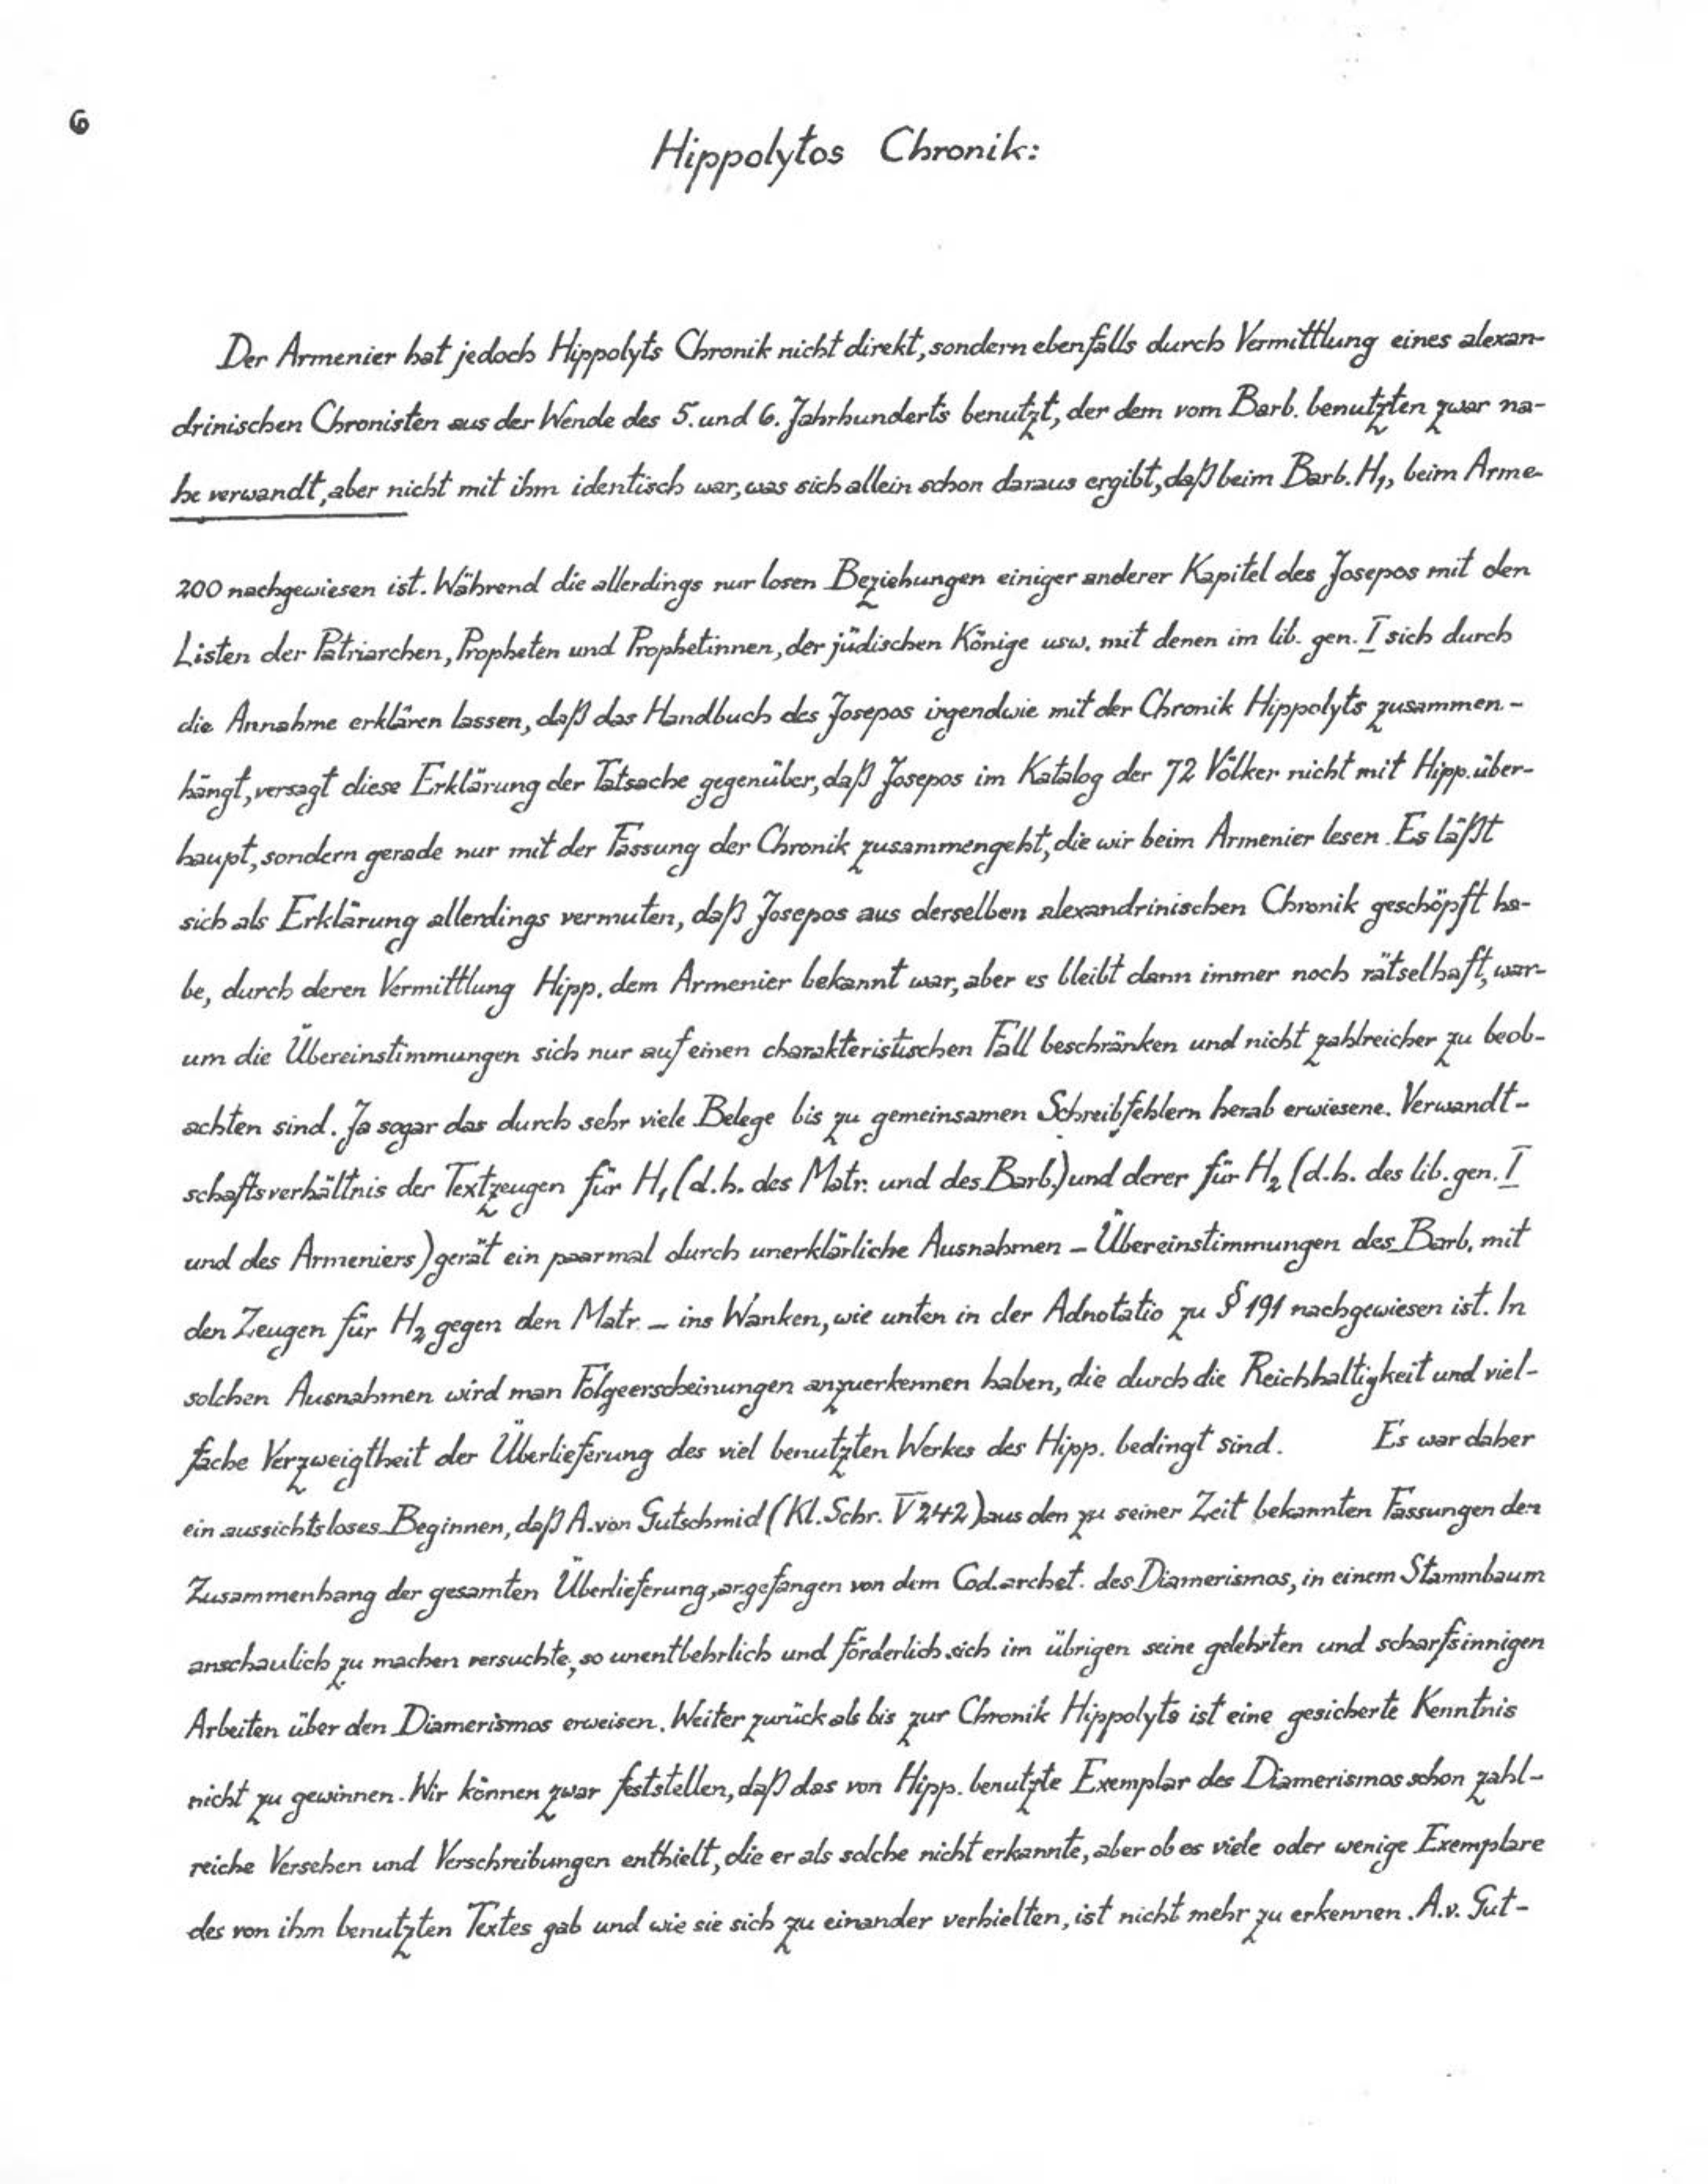 6
Hippolytos Chronik:
Der Armenier hat jedoch Hippolyts Chronik nicht direkt, sondern ebenfalls durch Vermittlung eines alexan-
drinischen Chronisten aus der Wende des 5. und 6. Jahrhunderts benutzt, der dem vom Barb. benutzten zwar na-
he verwandt, aber nicht mit ihm identisch war, was sich allein schon daraus ergibt, daß beim Barb. H₁, beim Arme-
200 nachgewiesen ist. Während die allerdings nur losen Beziehungen einiger anderer Kapitel des Josepos mit den
Listen der Patriarchen, Propheten und Prophetinnen, der jüdischen Könige usw. mit denen im lib. gen. I sich durch
die Annahme erklären lassen, daß das Handbuch des Josepos irgendwie mit der Chronik Hippolyts zusammen-
hängt, versagt diese Erklärung der Tatsache gegenüber, daß Josepos im Katalog der 72 Völker nicht mit Hipp. über-
haupt, sondern gerade nur mit der Fassung der Chronik zusammengeht, die wir beim Armenier lesen. Es läßt
sich als Erklärung allerdings vermuten, daß Josepos aus derselben alexandrinischen Chronik geschöpft ha-
be, durch deren Vermittlung Hipp. dem Armenier bekannt war, aber es bleibt dann immer noch rätselhaft, war-
um die Übereinstimmungen sich nur auf einen charakteristischen Fall beschränken und nicht zahlreicher zu beob-
achten sind. Ja sogar das durch sehr viele Belege bis zu gemeinsamen Schreibfehlern herab erwiesene. Verwandt-
schaftsverhältnis der Textzeugen für H₁ (d. h. des Matr. und des Barb.) und derer für H₂ (d. h. des lib. gen. I
und des Armeniers) gerät ein paarmal durch unerklärliche Ausnahmen – Übereinstimmungen des Barb. mit
den Zeugen für H₂ gegen den Matr. – ins Wanken, wie unten in der Adnotatio zu § 191 nachgewiesen ist. In
solchen Ausnahmen wird man Folgeerscheinungen anzuerkennen haben, die durch die Reichhaltigkeit und viel-
fache Verzweigtheit der Überlieferung des viel benutzten Werkes des Hipp. bedingt sind. Es war daher
ein aussichtsloses Beginnen, daß A. von Gutschmid (Kl. Schr. V 242) aus den zu seiner Zeit bekannten Fassungen den
Zusammenhang der gesamten Überlieferung, angefangen von dem Cod. archet. des Diamerismos, in einem Stammbaum
anschaulich zu machen versuchte, so unentbehrlich und förderlich sich im übrigen seine gelehrten und scharfsinnigen
Arbeiten über den Diamerismos erweisen. Weiter zurück als bis zur Chronik Hippolyts ist eine gesicherte Kenntnis
nicht zu gewinnen. Wir können zwar feststellen, daß das von Hipp. benutzte Exemplar des Diamerismos schon zahl-
reiche Versehen und Verschreibungen enthielt, die er als solche nicht erkannte, aber ob es viele oder wenige Exemplare
des von ihm benutzten Textes gab und wie sie sich zu einander verhielten, ist nicht mehr zu erkennen. A. v. Gut-